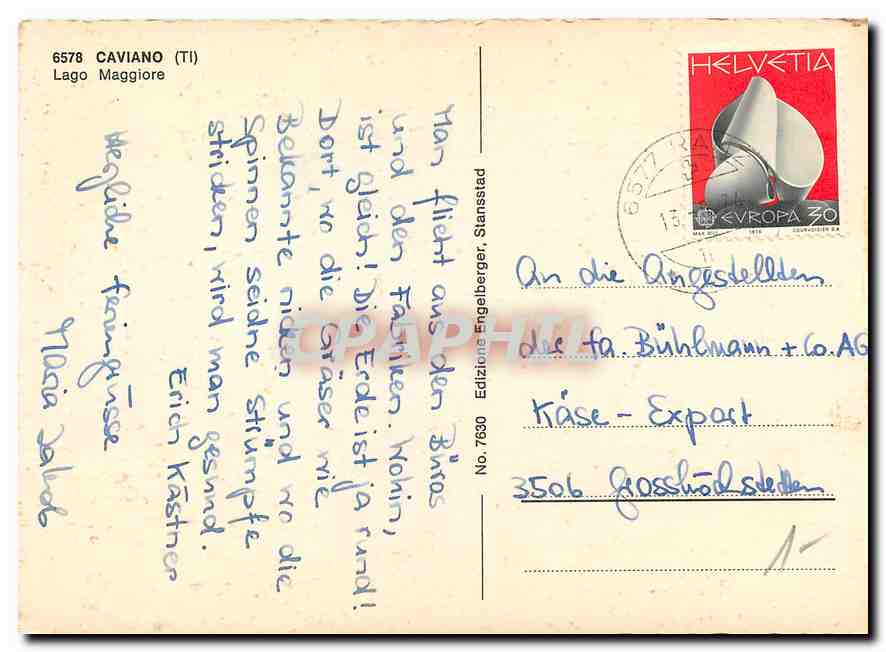 6578 CAVIANO (TI)
Lago Maggiore
Man flieht aus den Büros
und den Fabriken. Wohin,
ist gleich! Die Erde ist ja rund!
Dort, wo die Gräser wie
Bekannte nicken und wo die
Spinnen seidne Strümpfe
stricken, wird man gesund.
Erich Kästner
Herzliche Feriengrüsse
Maria Jakob
No. 7630 Edizione Engelberger, Stansstad
HELVETIA
EVROPA 30
1976 COURVOISIER S.A.
6577 RA
13.
An die Angestellten
der Fa. Bühlmann + Co. AG
Käse - Export
3506 Grosshöchstetten
1-
CPAPHIL